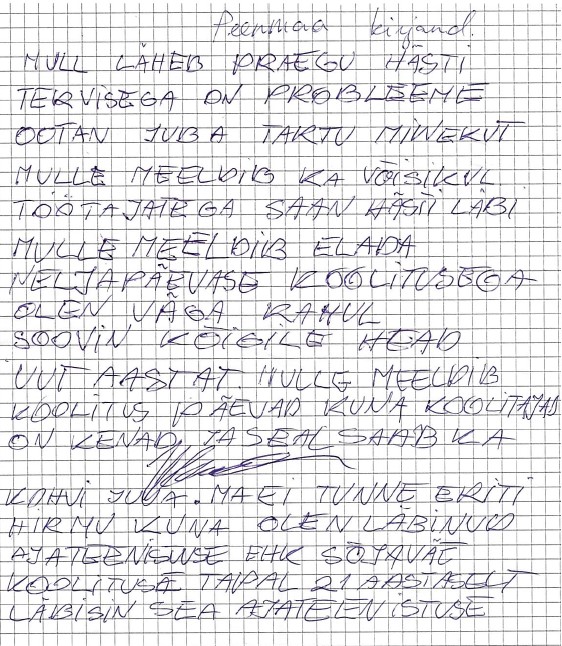 Peenmaa kirjand.
MULL LÄHEB PRAEGU HÄSTI
TERVISEGA ON PROBLEEME
OOTAN JUBA TARTU MINEKUT
MULLE MEELDIB KA VÕISIKUL
TÖÖTAJATEGA SAAN HÄSTI LÄBI
MULLE MEELDIB ELADA
NELJAPÄEVASE KOOLITUSEGA
OLEN VÄGA RAHUL
SOOVIN KÕIGILE HEAD
UUT AASTAT MULLE MEELDIB
KOOLITUS PÄEVAD KUNA KOOLITAJAD
ON KENAD JA SEAL SAAB KA
KOHVI JUUA. MA EI TUNNE ERITI
HIRMU KUNA OLEN LÄBINUD
AJATEENISUSE EHK SÕJAVÄE
KOOLITUSE TAIPAL 21 AASTASELT
LÄBISIN SEA AJATEENISTUSE